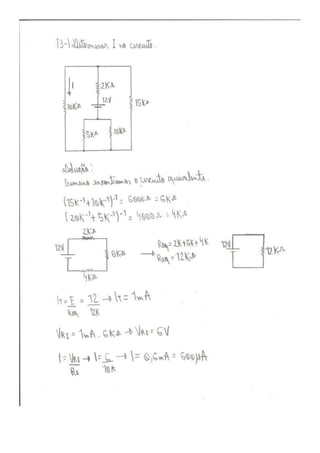 13-) Determinar I no circuito.
I
2KΩ
12V
10KΩ
15KΩ
5KΩ
20KΩ
Solução:
Primeiro encontramos o circuito equivalente.
(15K⁻¹+10K⁻¹)⁻¹ = 6000Ω = 6KΩ
(20K⁻¹+5K⁻¹)⁻¹ = 4000Ω = 4KΩ
2KΩ
12V
6KΩ
4KΩ
Req = 2K+6K+4K
→ Req = 12KΩ
12V
12KΩ
IT = E/Req = 12/12K → IT = 1mA
VR1 = 1mA . 6KΩ → VR1 = 6V
I = VR1/R1 → I = 6/10K → I = 0,6mA = 600µA